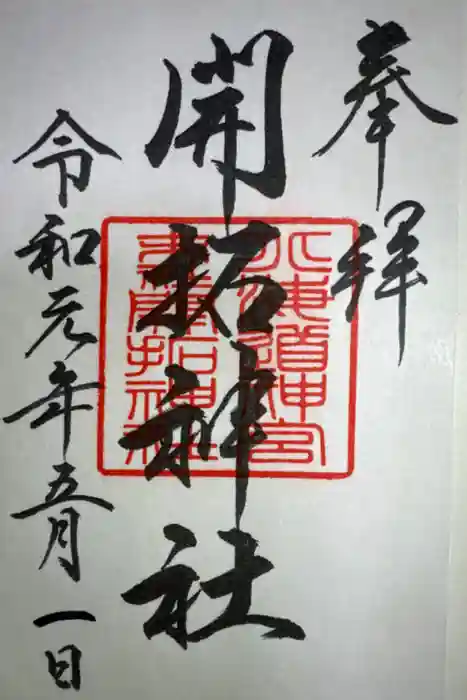 奉拝
開拓神社
北海道神宮
末社開拓神社
令和元年五月一日